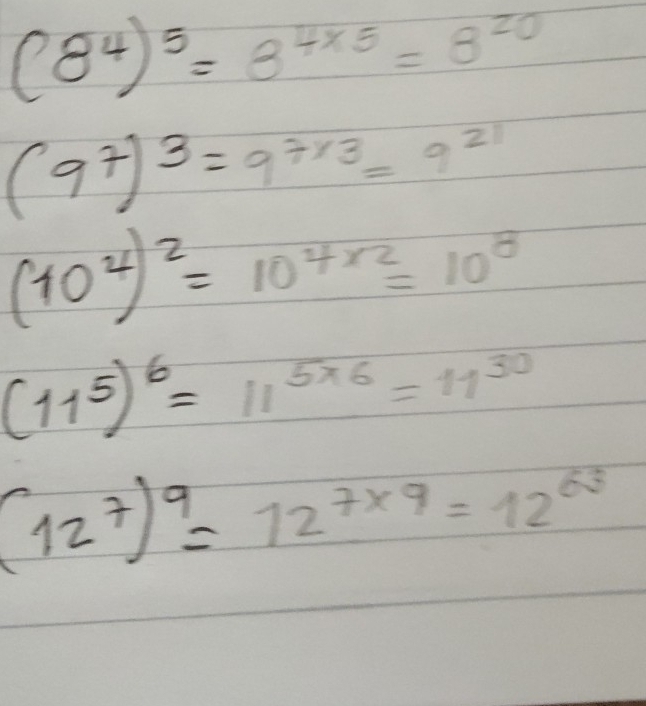 (8⁴)⁵ = 8⁴ˣ⁵ = 8²⁰
(9⁷)³ = 9⁷ˣ³ = 9²¹
(10⁴)² = 10⁴ˣ² = 10⁸
(11⁵)⁶ = 11⁵ˣ⁶ = 11³⁰
(12⁷)⁹ = 12⁷ˣ⁹ = 12⁶³